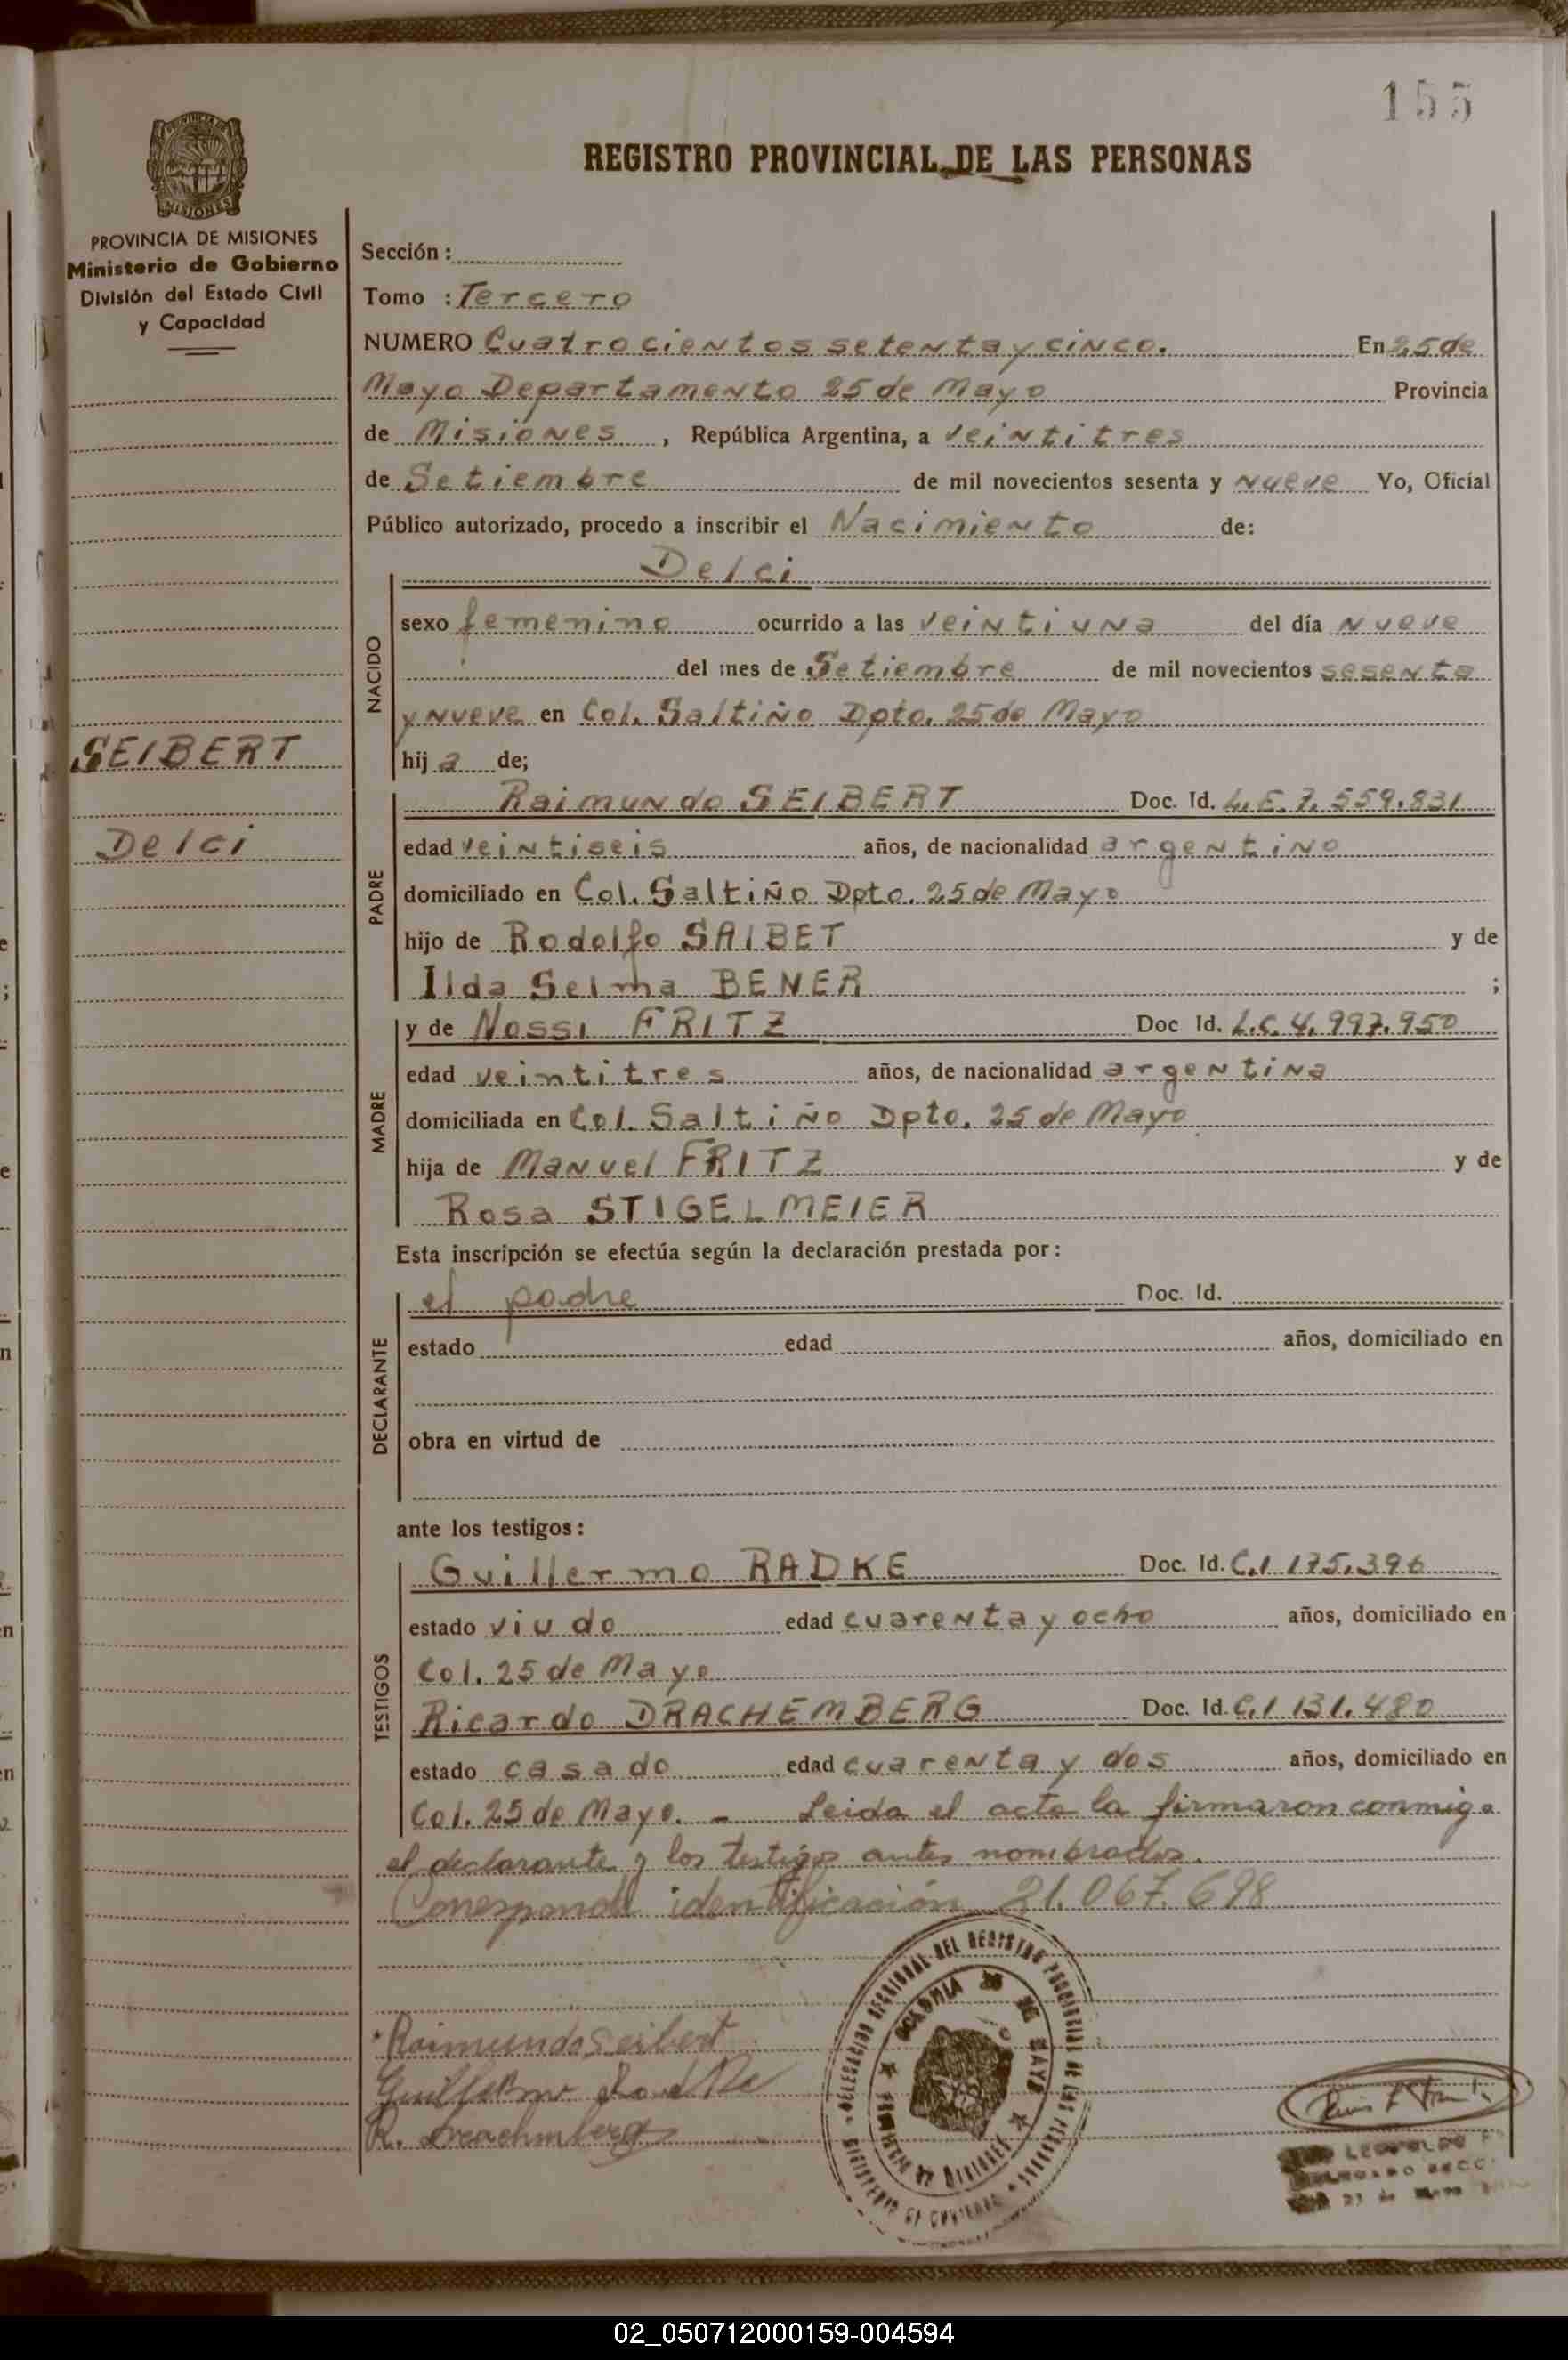 155
REGISTRO PROVINCIAL DE LAS PERSONAS
PROVINCIA DE MISIONES
Ministerio de Gobierno
División del Estado Civil
y Capacidad
Sección :
Tomo : Tercero
NUMERO Cuatrocientos setenta y cinco. En 25 de
Mayo Departamento 25 de Mayo Provincia
de Misiones , República Argentina, a Veintitres
de Setiembre de mil novecientos sesenta y nueve Yo, Oficial
Público autorizado, procedo a inscribir el Nacimiento de:
NACIDO
Delci
sexo femenino ocurrido a las veintiuna del día nueve
del mes de Setiembre de mil novecientos sesenta
y nueve en Col. Saltiño Dpto. 25 de Mayo
SEIBERT
hij a de;
PADRE
Raimundo SEIBERT Doc. Id. L.E. 7.559.831
Delci
edad veintiseis años, de nacionalidad argentino
domiciliado en Col. Saltiño Dpto. 25 de Mayo
hijo de Rodolfo SAIBET y de
Ilda Selma BENER ;
MADRE
y de Nossi FRITZ Doc Id. L.C. 4.997.950
edad veintitres años, de nacionalidad argentina
domiciliada en Col. Saltiño Dpto. 25 de Mayo
hija de Manuel FRITZ y de
Rosa STIGELMEIER
Esta inscripción se efectúa según la declaración prestada por:
DECLARANTE
el padre Doc. Id.
estado edad años, domiciliado en
obra en virtud de
ante los testigos:
TESTIGOS
Guillermo RADKE Doc. Id. C.I 175.396
estado viudo edad cuarenta y ocho años, domiciliado en
Col. 25 de Mayo
Ricardo DRACHEMBERG Doc. Id. C.I 131.480
estado casado edad cuarenta y dos años, domiciliado en
Col. 25 de Mayo. - Leida el acta la firmaron conmigo
el declarante y los testigos antes nombrados.
Corresponde identificación 21.067.698
Raimundo Seibert
Guillermo Radke
R. Drachmberg
COLONIA 25 DE MAYO
LEOPOLDO
25 de Mayo
02_050712000159-004594